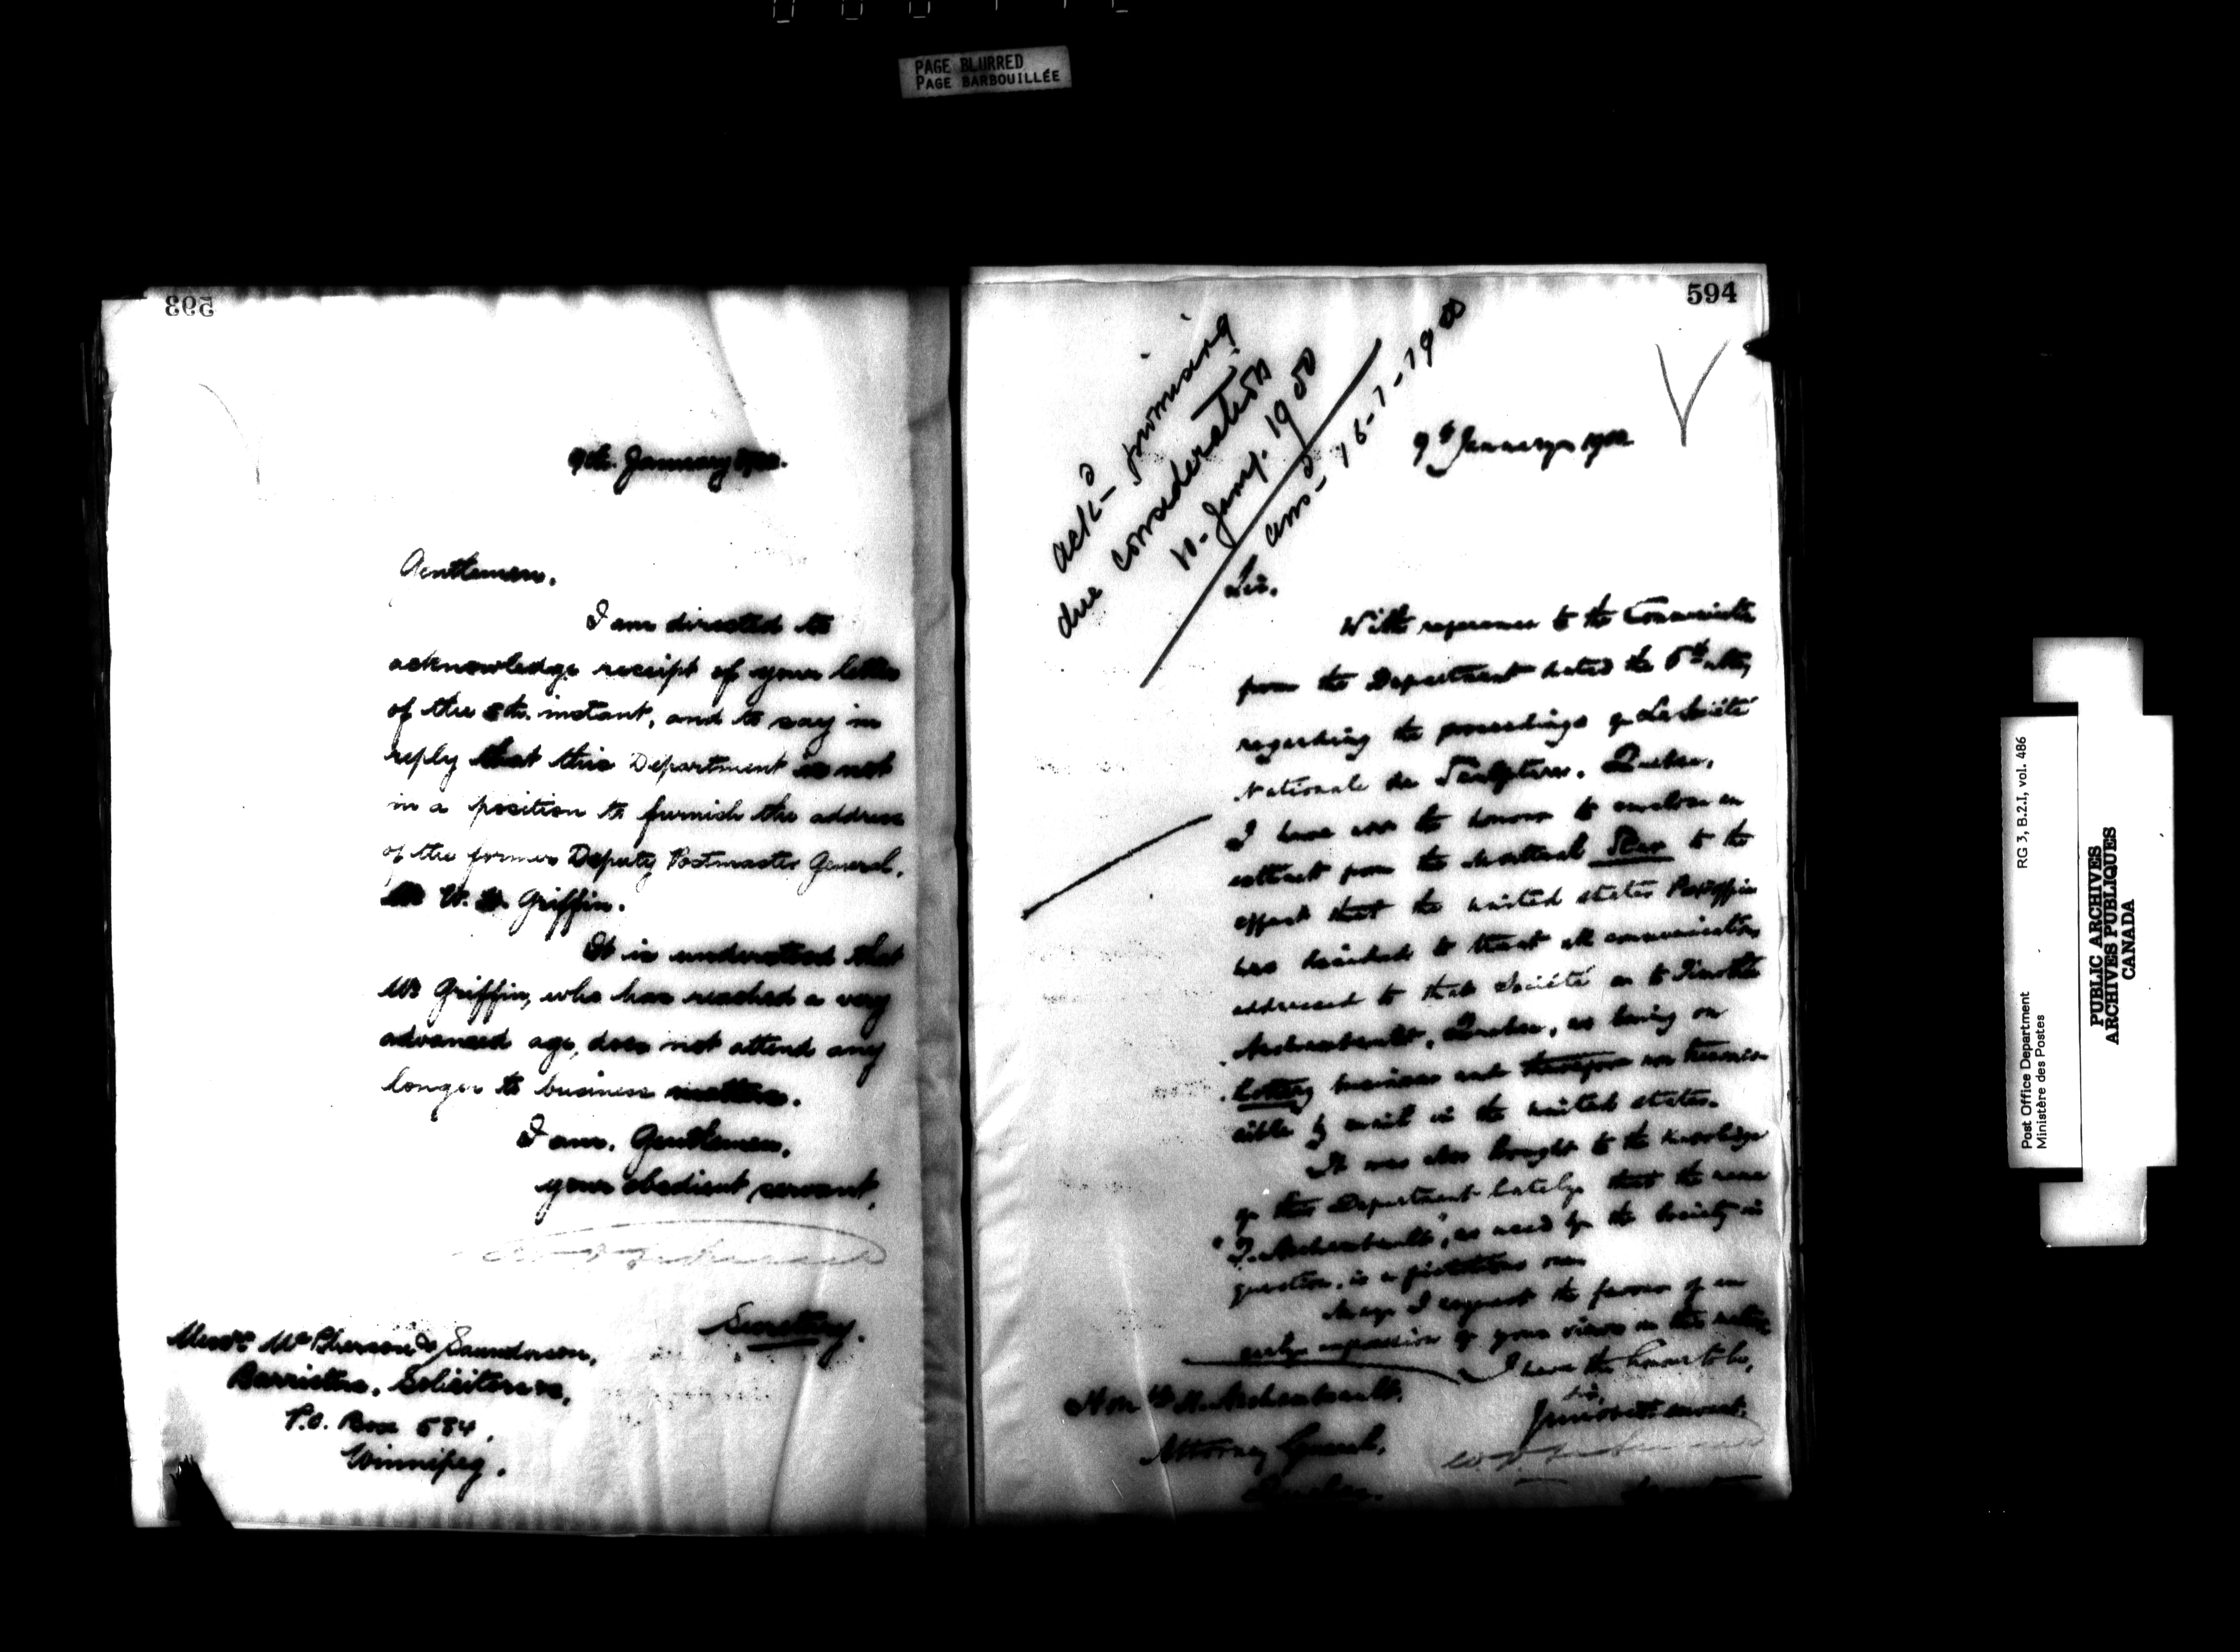 PAGE BLURRED
PAGE BARBOUILLÉE
593
9th. January 1900.
Gentlemen,
I am directed to
acknowledge receipt of your letter
of the 5th. instant, and to say in
reply that this Department is not
in a position to furnish the address
of the former Deputy Postmaster General,
Mr W. Griffin.
It is understood that
Mr Griffin, who has reached a very
advanced age, does not attend any
longer to business matters.
I am, Gentlemen,
your obedient servant,
Secretary.
Messrs. McPherson & Saunderson,
Barristers, Solicitors &c,
P.O. Box 584,
Winnipeg.
594
ackd promising
due consideration
10-Jany. 1900
ansd 16-1-1900
9th January 1900
Sir,
With reference to the Communication
from the Department dated the 5th ulto,
regarding the proceedings of La Société
Nationale de Sculpture, Quebec,
I have now the honour to enclose an
extract from the Montreal Star to the
effect that the United States Post Office
has decided to treat all communications
addressed to that Société or to Timothée
Archambault, Quebec, as being on
lottery business and therefore non transmis-
sible by mail in the United States.
It was also brought to the knowledge
of this Department lately that the name
"T. Archambault", as used by the Society in
question, is a fictitious one.
May I request the favour of an
early expression of your views in this matter.
I have the honour to be,
Sir,
Your obedt servant,
Hon. H. Archambault,
Attorney General,
Quebec.
Post Office Department
Ministère des Postes
RG 3, B.2.I, vol. 486
PUBLIC ARCHIVES
ARCHIVES PUBLIQUES
CANADA